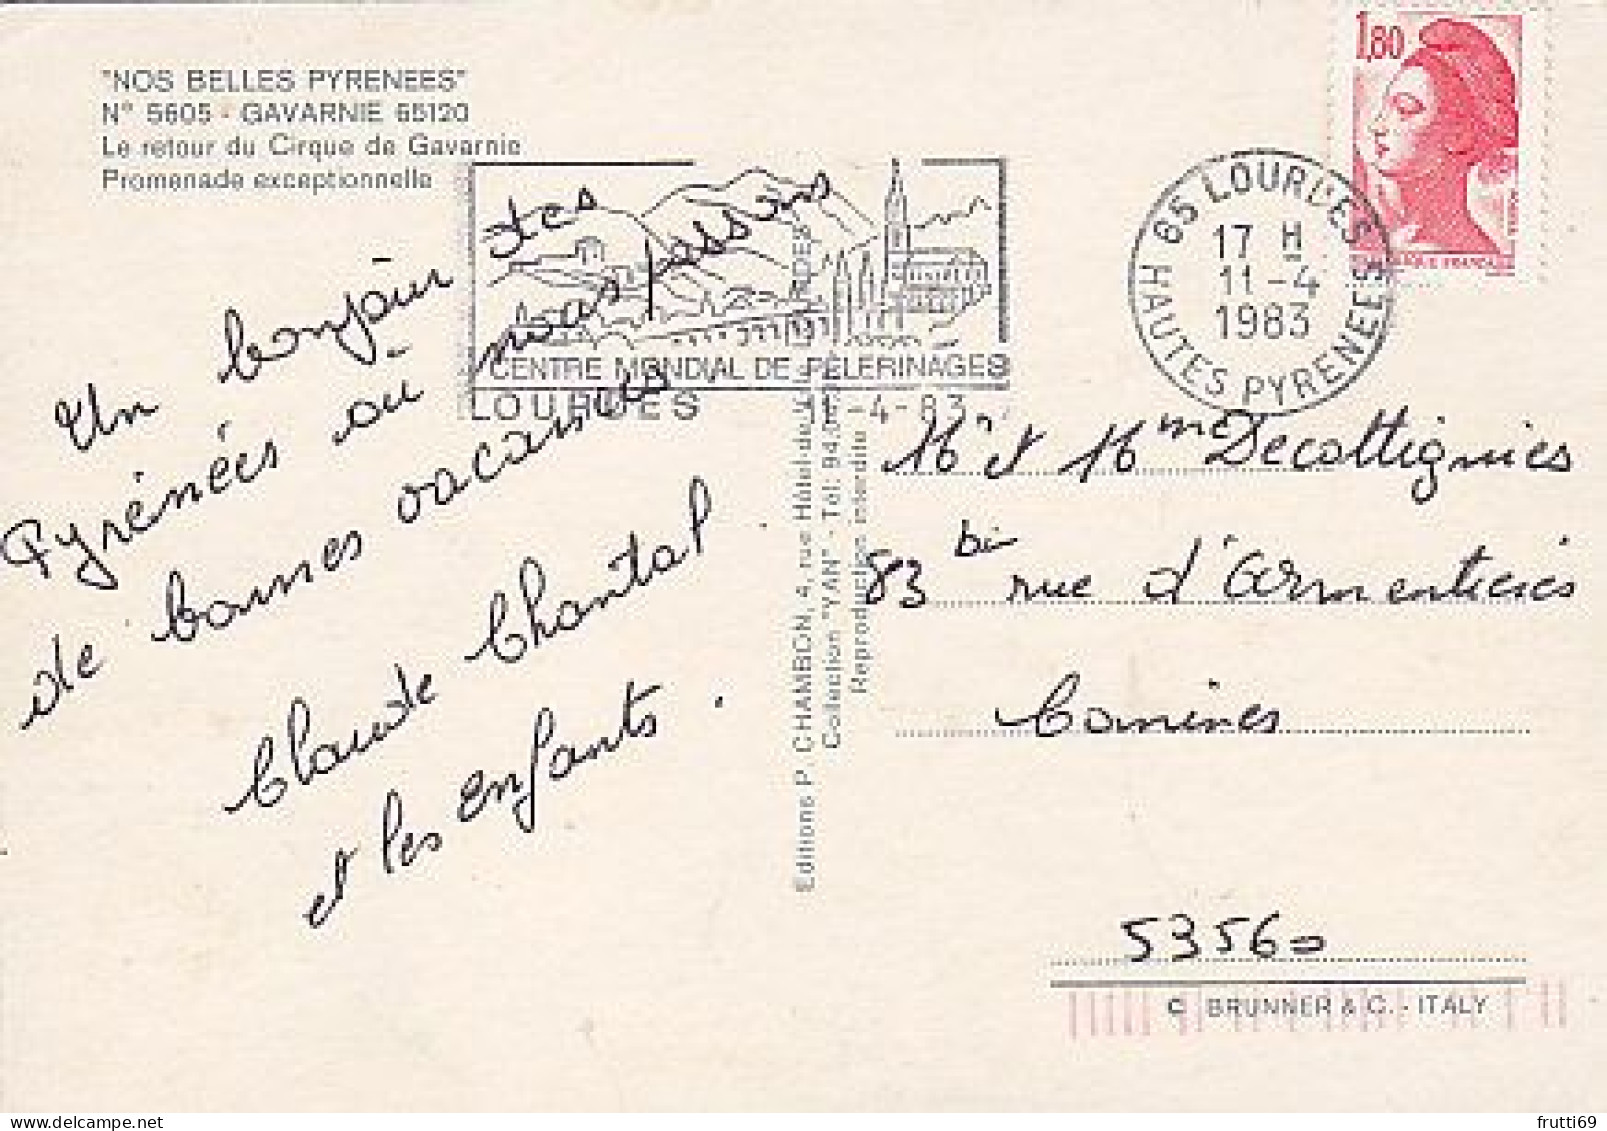 "NOS BELLES PYRENEES"
N° 5605 - GAVARNIE 65120
Le retour du Cirque de Gavarnie
Promenade exceptionnelle
Un bonjour des
Pyrénées où nous passons
de bonnes vacances.
Claude Chantal.
et les enfants.
CENTRE MONDIAL DE PÈLERINAGES
LOURDES 11-4-83
65 LOURDES
17 H
11-4
1983
HAUTES PYRENEES
1,80
Editions P. CHAMBON, 4, rue Hôtel-de-
Collection "YAN" - Tél. 94.0
Reproduction interdite
Mr et Mme Decottignies
83 bis rue d'Armentières
Comines
53560
© BRUNNER & C. - ITALY
frutti69